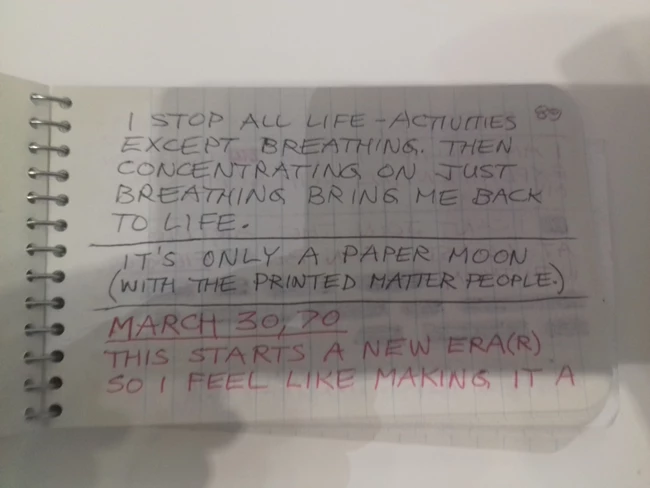 I STOP ALL LIFE-ACTIVITIES 89
EXCEPT BREATHING. THEN
CONCENTRATING ON JUST
BREATHING BRING ME BACK
TO LIFE.
IT'S ONLY A PAPER MOON
(WITH THE PRINTED MATTER PEOPLE.)
MARCH 30, 70
THIS STARTS A NEW ERA(R)
SO I FEEL LIKE MAKING IT A